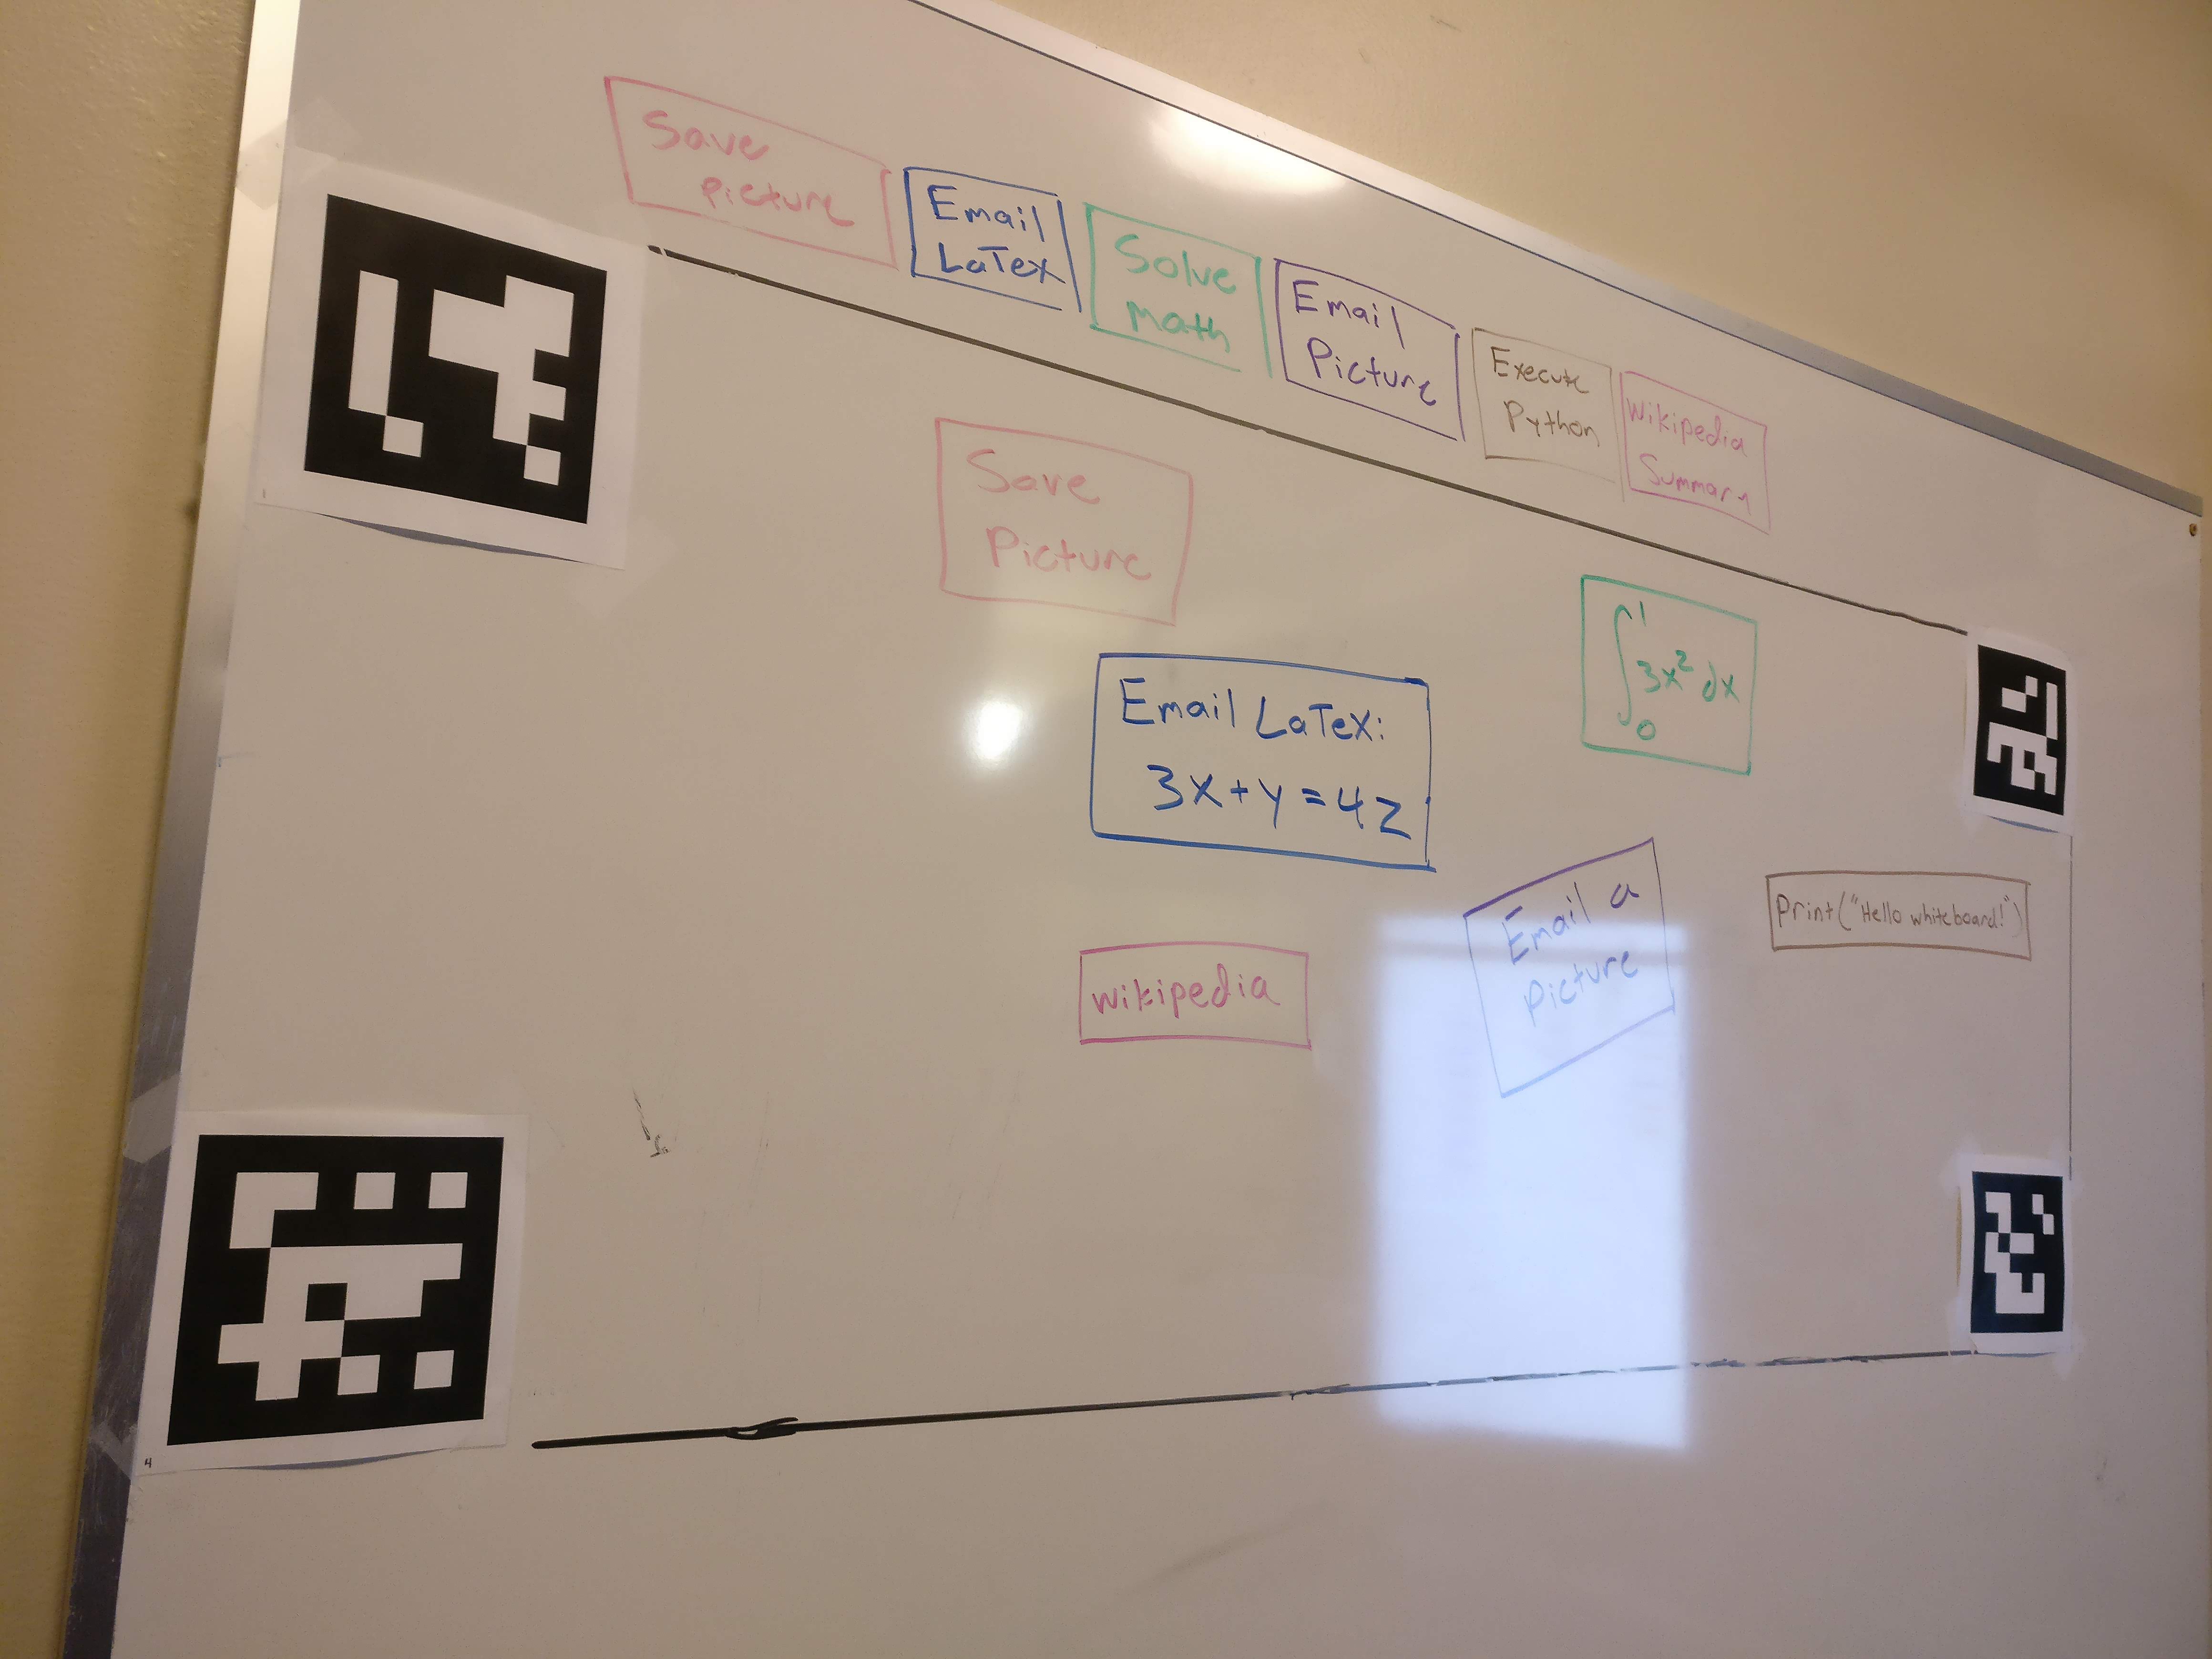 Save
Picture
Email
LaTex
Solve
Math
Email
Picture
Execute
Python
Wikipedia
Summary
Save
Picture
∫₀¹ 3x² dx
Email LaTex:
3x+y=4z
Email a
Picture
Print("Hello whiteboard!")
wikipedia
1
4